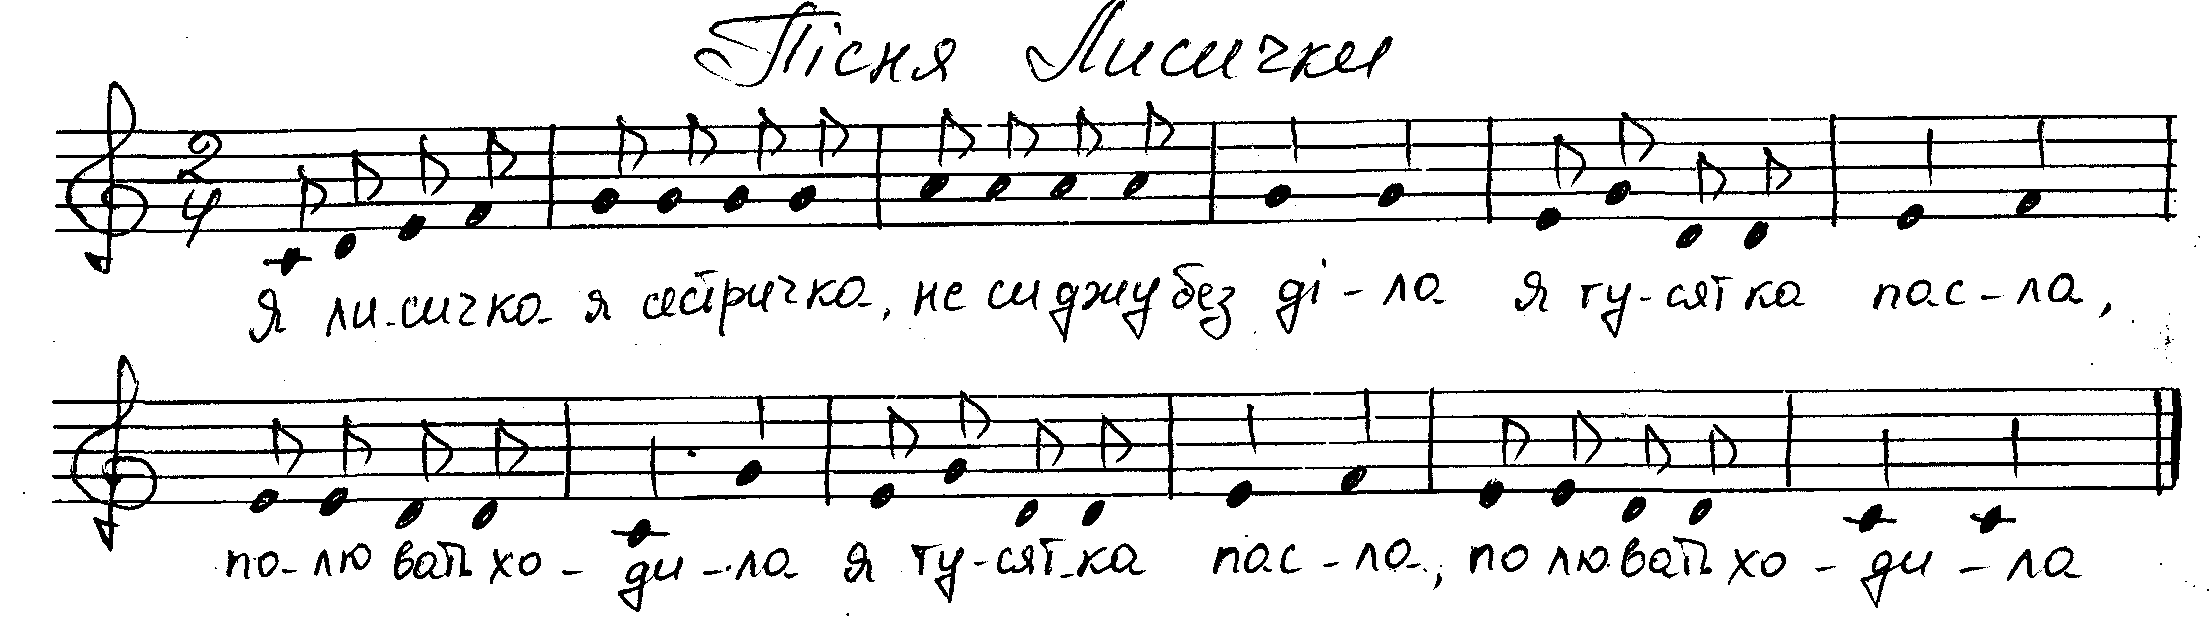 Пісня Лисички
2
4
Я ли-сичка я сестричка, не сиджу без ді-ла я гу-сятка пас-ла,
по-лювать хо-ди-ла я гу-сят-ка пас-ла, полювать хо-ди-ла